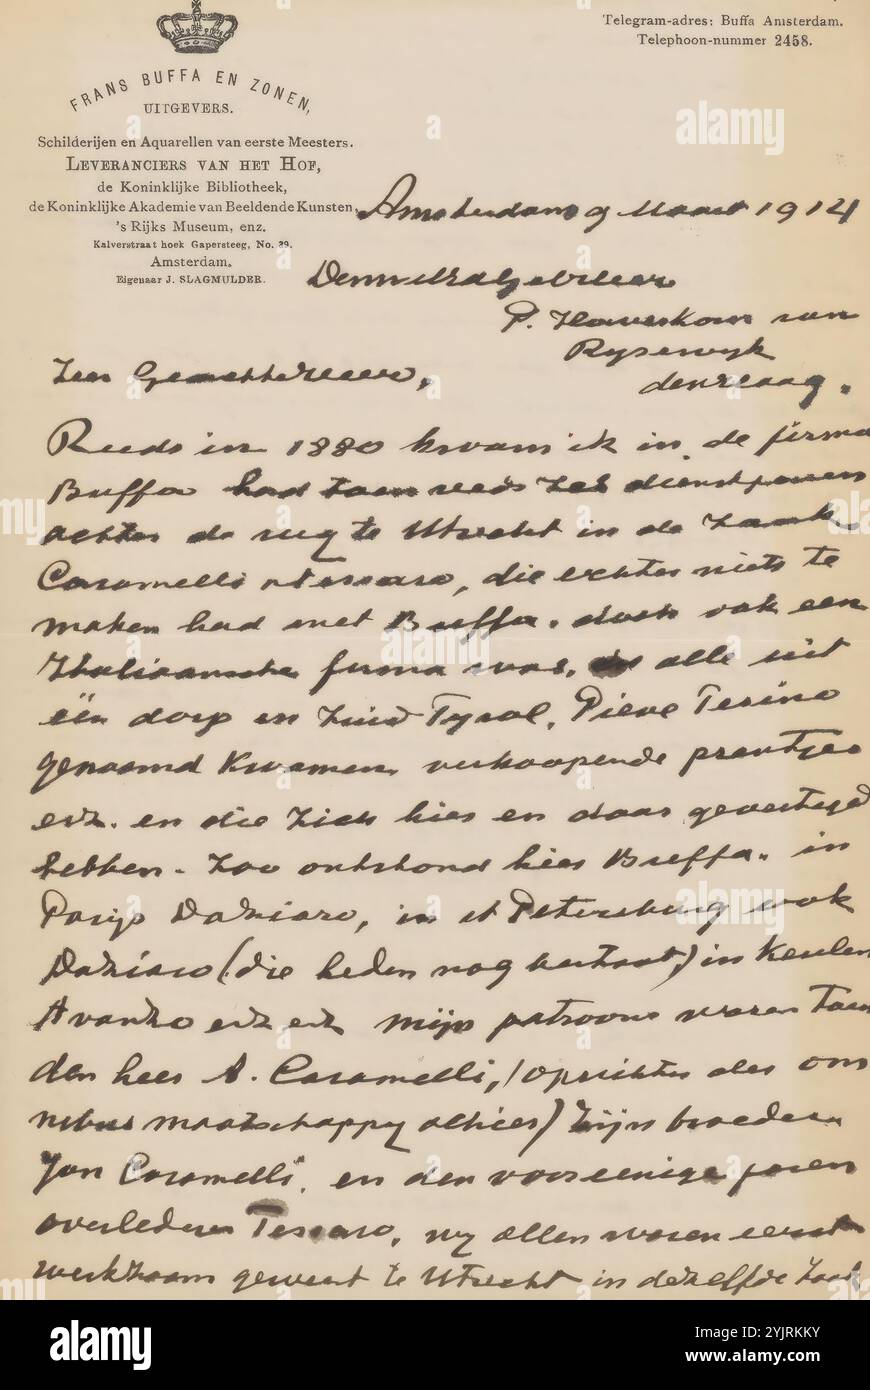 Telegram-adres: Buffa Amsterdam.
Telephoon-nummer 2458.
FRANS BUFFA EN ZONEN,
UITGEVERS.
Schilderijen en Aquarellen van eerste Meesters.
LEVERANCIERS VAN HET HOF,
de Koninklijke Bibliotheek,
de Koninklijke Akademie van Beeldende Kunsten,
's Rijks Museum, enz.
Kalverstraat hoek Gapersteeg, No. 39.
Amsterdam.
Eigenaar J. SLAGMULDER.
Amsterdam 9 Maart 1914
Den WelEdelGeb Heer
P. Haverkorn van
Rysewyk
den Haag.
Zeer Geachte Heer,
Reeds in 1880 kwam ik in de firma
Buffa had toen reeds zes dienstjaren
achter de rug te Utrecht in de zaak
Caramelli & Tessaro, die echter niets te
maken had met Buffa. doch ook een
Italiaansche firma was. alle uit
één dorp in Zuid Tyrol, Pieve Tesino
genaamd kwamen verkoopende prentjes
enz. en die zich hier en daar gevestigd
hebben - Zoo ontstond hier Buffa. in
Parijs Daziaro, in St Petersburg ook
Daziaro (die heden nog bestaat) in Keulen
Avanzo enz enz Mijn patroons waren toen
den heer A. Caramelli, (oprichter der
maatschappy alhier) zijn broeder
Jan Caramelli. en den voor eenige jaren
overleden Tessaro, wy allen waren eerst
werkzaam geweest te Utrecht in dezelfde zaak
alamy
Image ID: 2YJRKKY
www.alamy.com